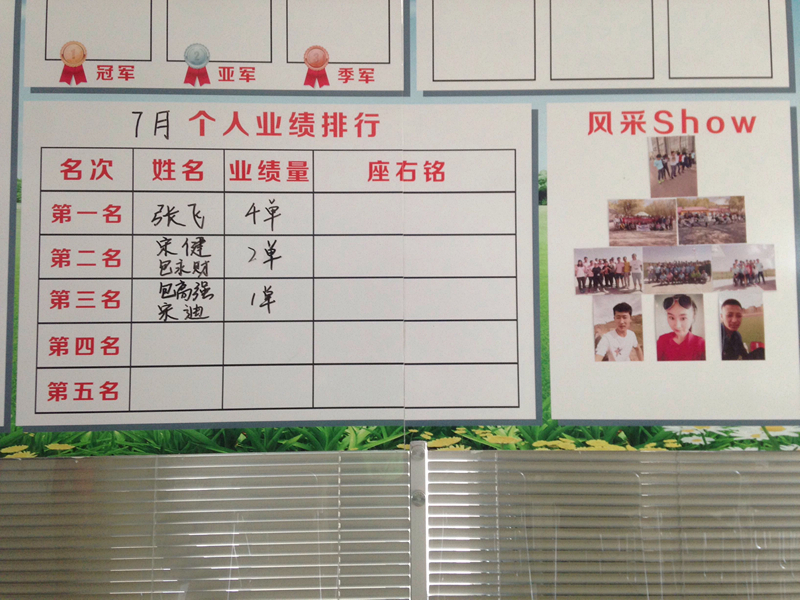 冠军 亚军 季军
7月 个人业绩排行
名次 姓名 业绩量 座右铭
第一名 张飞 4单
第二名 宋健 包永财 2单
第三名 包高强 宋迪 1单
第四名
第五名
风采Show